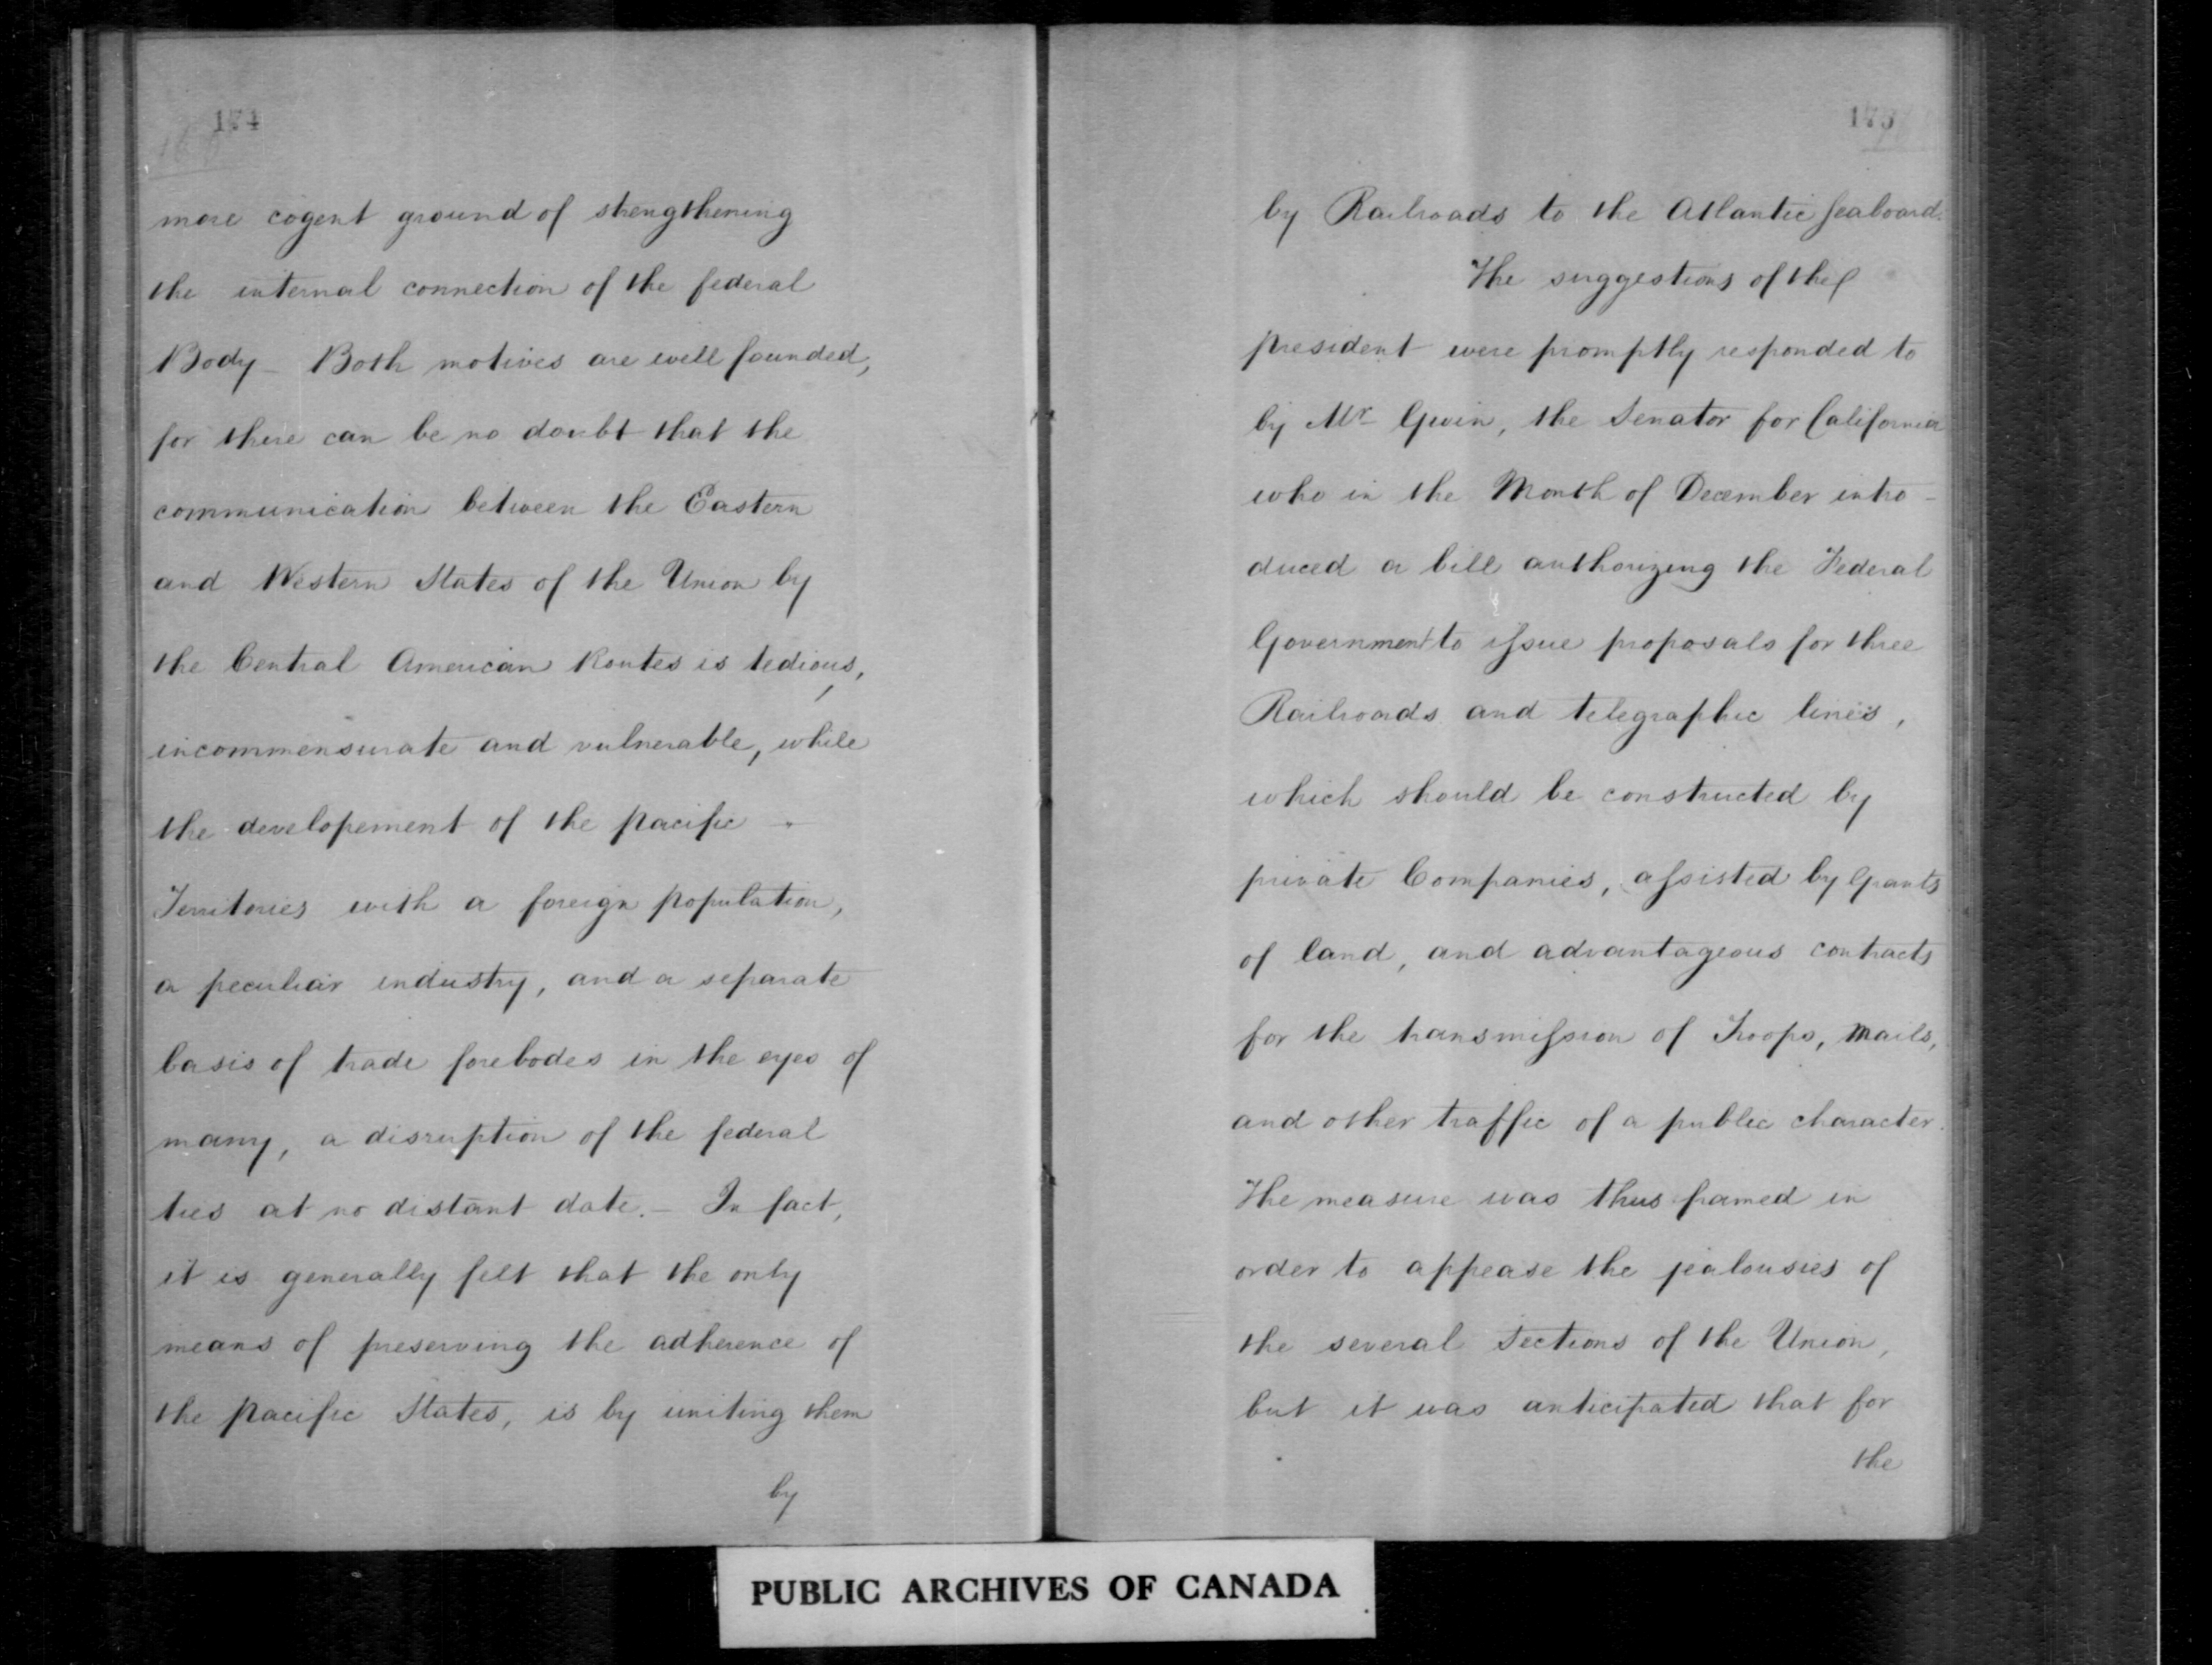 174
more cogent ground of strengthening
the internal connection of the federal
Body – Both motives are well founded,
for there can be no doubt that the
communication between the Eastern
and Western States of the Union by
the Central American Routes is tedious,
incommensurate and vulnerable, while
the developement of the pacific
Territories with a foreign population,
a peculiar industry, and a separate
basis of trade forebodes in the eyes of
many, a disruption of the federal
ties at no distant date. – In fact,
it is generally felt that the only
means of preserving the adherence of
the pacific States, is by uniting them
by
175
by Railroads to the Atlantic Seaboard.
The suggestions of the
president were promptly responded to
by Mr Gwin, the Senator for California
who in the Month of December intro-
duced a bill authorizing the Federal
Government to issue proposals for three
Railroads and telegraphic lines,
which should be constructed by
private Companies, assisted by Grants
of land, and advantageous contracts
for the transmission of Troops, Mails,
and other traffic of a public character.
The measure was thus framed in
order to appease the jealousies of
the several Sections of the Union,
but it was anticipated that for
the
PUBLIC ARCHIVES OF CANADA